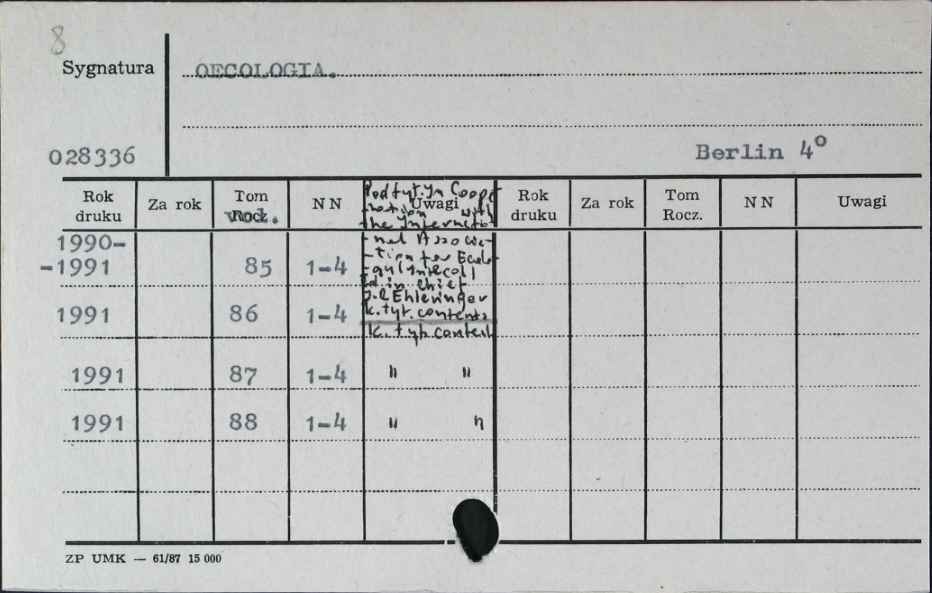 8
Sygnatura OECOLOGIA.
028336 Berlin 4º
Rok druku Za rok Tom Rocz. N N Uwagi Rok druku Za rok Tom Rocz. N N Uwagi
Podtyt. In Coope
-ration with
the Internatio
-nal Associa-
-tion for Ecolo-
-gy (Intecol)
Ed in chief
J.R Ehleringer
k. tyt. contents
1990-
-1991 85 1-4
1991 86 1-4 k. tyt. content
1991 87 1-4 " "
1991 88 1-4 " "
ZP UMK — 61/87 15 000